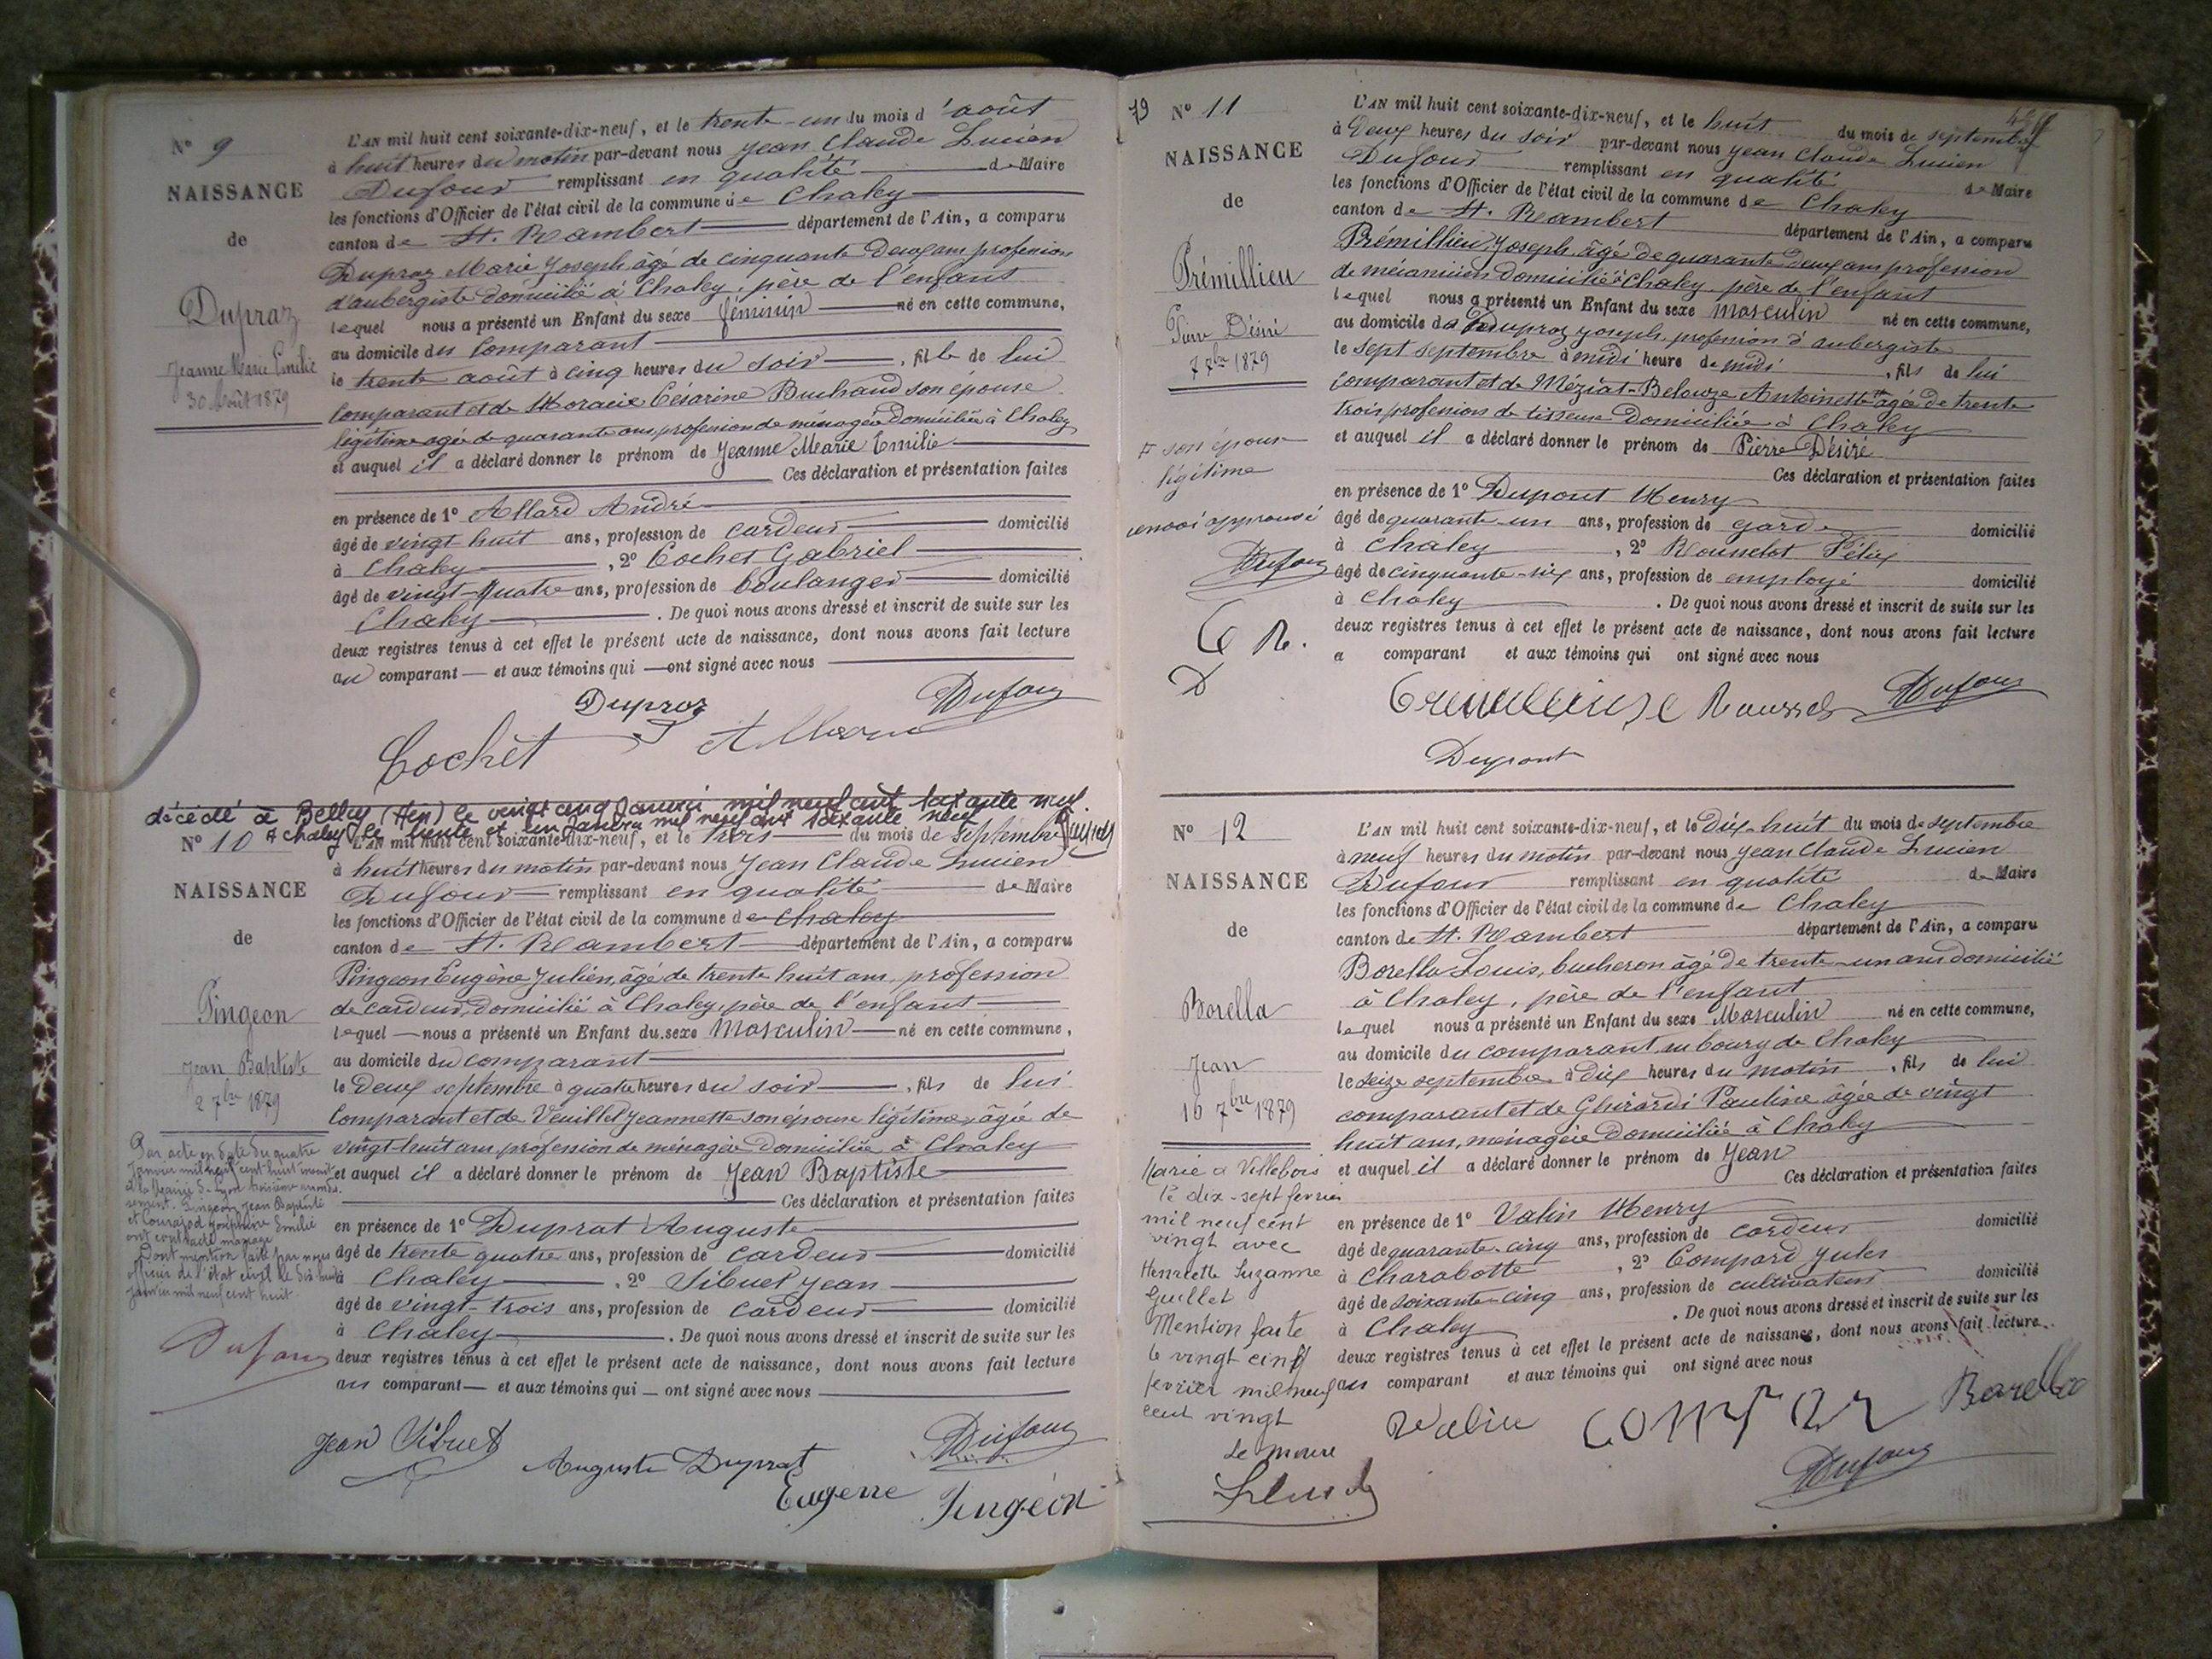 N° 9
NAISSANCE
de
Dupraz
Jeanne Marie Emilie
30 Août 1879
L'AN mil huit cent soixante-dix-neuf, et le trente-un du mois d'août
à huit heures du matin par-devant nous Jean Claude Lucien
Dufour remplissant en qualité de Maire
les fonctions d'Officier de l'état civil de la commune de Chaley
canton de St. Rambert département de l'Ain, a comparu
Dupraz Marie Joseph, âgé de cinquante deux ans profession
d'aubergiste domicilié à Chaley, père de l'enfant
lequel nous a présenté un Enfant du sexe féminin né en cette commune,
au domicile du comparant
le trente août à cinq heures du soir, fille de lui
comparant et de Horacie Césarine Buchaud son épouse
légitime agée de quarante ans, profession de ménagère domiciliée à Chaley
et auquel il a déclaré donner le prénom de Jeanne Marie Emilie
Ces déclaration et présentation faites
en présence de 1° Allard André
âgé de vingt huit ans, profession de cardeur domicilié
à Chaley, 2° Cochet Gabriel
âgé de vingt-quatre ans, profession de boulanger domicilié
Chaley. De quoi nous avons dressé et inscrit de suite sur les
deux registres tenus à cet effet le présent acte de naissance, dont nous avons fait lecture
au comparant et aux témoins qui ont signé avec nous
Dupraz Dufour
Cochet
décédé à Belley (Ain) le vingt cinq janvier mil neuf cent soixante neuf.
à Chaley le trente et un janvier mil neuf cent soixante neuf
N° 10
NAISSANCE
de
Pingeon
Jean Baptiste
2 7bre 1879
Par acte en date du quatre
janvier mil neuf cent huit inscrit
à la Mairie de Lyon troisième arrondis-
sement. Pingeon Jean Baptiste
et Courajod Joséphine Emilie
ont contracté mariage
Dont mention faite par nous
officier de l'état civil le dix huit
janvier mil neuf cent huit.
Dufour
L'AN mil huit cent soixante-dix-neuf, et le trois du mois de septembre
à huit heures du matin par-devant nous Jean Claude Lucien
Dufour remplissant en qualité de Maire
les fonctions d'Officier de l'état civil de la commune de Chaley
canton de St. Rambert département de l'Ain, a comparu
Pingeon Eugène Julien, âgé de trente huit ans, profession
de cardeur, domicilié à Chaley, père de l'enfant
lequel nous a présenté un Enfant du sexe Masculin né en cette commune,
au domicile du comparant
le deux septembre à quatre heures du soir, fils de lui
comparant et de Veuillet Jeannette son épouse légitime, âgée de
vingt-huit ans, profession de ménagère domiciliée à Chaley
et auquel il a déclaré donner le prénom de Jean Baptiste
Ces déclaration et présentation faites
en présence de 1° Duprat Auguste
âgé de trente quatre ans, profession de cardeur domicilié
à Chaley, 2° Sibuet Jean
âgé de vingt-trois ans, profession de cardeur domicilié
à Chaley. De quoi nous avons dressé et inscrit de suite sur les
deux registres tenus à cet effet le présent acte de naissance, dont nous avons fait lecture
au comparant et aux témoins qui ont signé avec nous
Jean Sibuet Auguste Duprat Dufour
Eugène Pingeon
79 N° 11
NAISSANCE
de
Prémillieu
Pierre Désiré
7 7bre 1879
# son épouse
légitime
renvoi approuvé
Dufour
D
L'AN mil huit cent soixante-dix-neuf, et le huit du mois de septembre
à Deux heures du soir par-devant nous Jean Claude Lucien
Dufour remplissant en qualité de Maire
les fonctions d'Officier de l'état civil de la commune de Chaley
canton de St. Rambert département de l'Ain, a comparu
Prémillieu Joseph, âgé de quarante deux ans profession
de mécanicien domicilié à Chaley, père de l'enfant
lequel nous a présenté un Enfant du sexe masculin né en cette commune,
au domicile de Dupraz Joseph, profession d'aubergiste
le sept septembre à midi heure de midi, fils de lui
comparant et de Méziat-Belouze Antoinette # agée de trente
trois profession de tisseuse domiciliée à Chaley
et auquel il a déclaré donner le prénom de Pierre Désiré
Ces déclaration et présentation faites
en présence de 1° Dupont Henry
âgé de quarante-un ans, profession de garde domicilié
à Chaley, 2° Rousselot Félix
âgé de cinquante-six ans, profession de employé domicilié
à Chaley. De quoi nous avons dressé et inscrit de suite sur les
deux registres tenus à cet effet le présent acte de naissance, dont nous avons fait lecture
a comparant et aux témoins qui ont signé avec nous
Dufour
Dupont
N° 12
NAISSANCE
de
Borella
Jean
16 7bre 1879
Marié à Villebois
le dix-sept fevrier
mil neuf cent
vingt avec
Henriette Suzanne
Guillet
Mention faite
le vingt cinq
fevrier mil neuf
cent vingt
Le Maire
L'AN mil huit cent soixante-dix-neuf, et le dix-huit du mois de septembre
à neuf heures du matin par-devant nous Jean Claude Lucien
Dufour remplissant en qualité de Maire
les fonctions d'Officier de l'état civil de la commune de Chaley
canton de St. Rambert département de l'Ain, a comparu
Borella Louis, bucheron âgé de trente-un ans domicilié
à Chaley, père de l'enfant
lequel nous a présenté un Enfant du sexe Masculin né en cette commune,
au domicile du comparant, au bourg de Chaley
le seize septembre à dix heures du matin, fils de lui
comparant et de Ghirardi Pauline âgée de vingt
huit ans, ménagère domiciliée à Chaley
et auquel il a déclaré donner le prénom de Jean
Ces déclaration et présentation faites
en présence de 1° Valin Henry
âgé de quarante-cinq ans, profession de cardeur domicilié
à Charabotte, 2° Compard Jules
âgé de soixante-cinq ans, profession de cultivateur domicilié
à Chaley. De quoi nous avons dressé et inscrit de suite sur les
deux registres tenus à cet effet le présent acte de naissance, dont nous avons fait lecture
au comparant et aux témoins qui ont signé avec nous
Valin Borella
Dufour